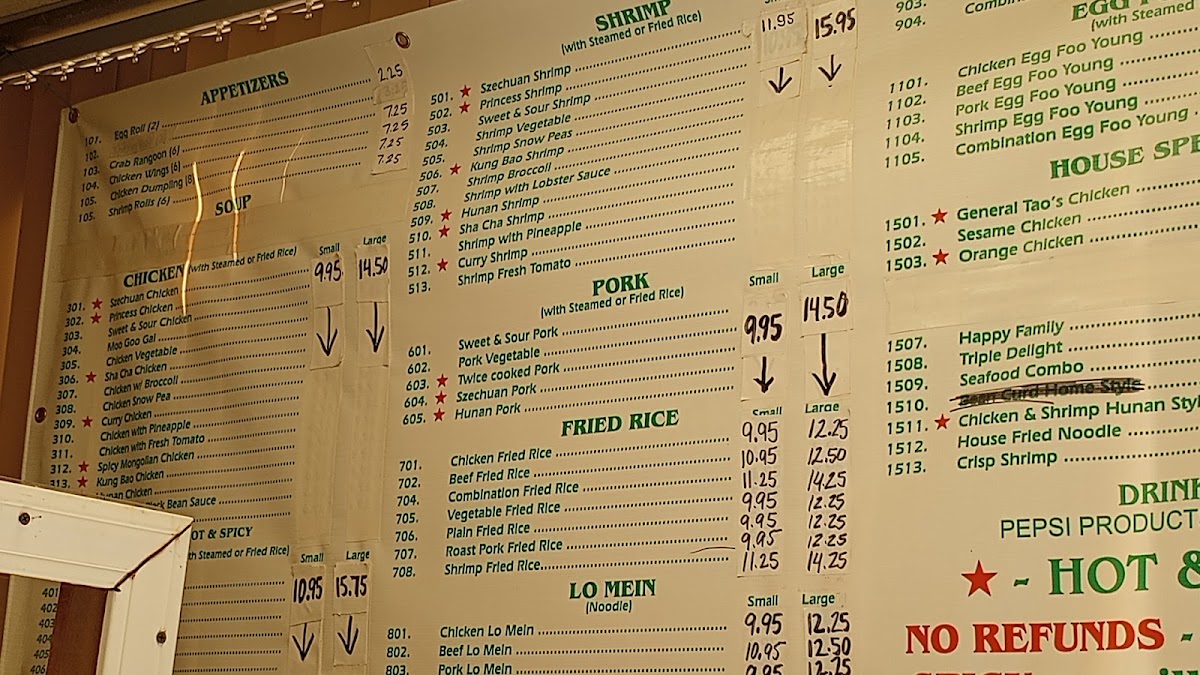 APPETIZERS
107. Egg Roll (2) 2.25
102.
103. Crab Rangoon (6) 7.25
104. Chicken Wings (6) 7.25
105. Chicken Dumpling (8) 7.25
105. Shrimp Rolls (6) 7.25
SOUP
CHICKEN (with Steamed or Fried Rice)
Small Large
9.95 14.50
301. ★ Szechuan Chicken
302. ★ Princess Chicken
303. Sweet & Sour Chicken
304. Moo Goo Gal
305. Chicken Vegetable
306. ★ Sha Cha Chicken
307. Chicken w/ Broccoli
308. Chicken Snow Pea
309. ★ Curry Chicken
310. Chicken with Pineapple
311. Chicken with Fresh Tomato
312. ★ Spicy Mongolian Chicken
313. ★ Kung Bao Chicken
Hunan Chicken
Bean Sauce
OT & SPICY
with Steamed or Fried Rice)
Small Large
10.95 15.75
401
402
403
404
405
406
SHRIMP
(with Steamed or Fried Rice)
11.95 15.95
501. ★ Szechuan Shrimp
502. ★ Princess Shrimp
503. Sweet & Sour Shrimp
504. Shrimp Vegetable
505. Shrimp Snow Peas
506. ★ Kung Bao Shrimp
507. Shrimp Broccoli
508. Shrimp with Lobster Sauce
509. ★ Hunan Shrimp
510. ★ Sha Cha Shrimp
511. Shrimp with Pineapple
512. ★ Curry Shrimp
513. Shrimp Fresh Tomato
PORK
(with Steamed or Fried Rice)
Small Large
9.95 14.50
601. Sweet & Sour Pork
602. Pork Vegetable
603. ★ Twice cooked Pork
604. ★ Szechuan Pork
605. ★ Hunan Pork
FRIED RICE
Small Large
701. Chicken Fried Rice 9.95 12.25
702. Beef Fried Rice 10.95 12.50
704. Combination Fried Rice 11.25 14.25
705. Vegetable Fried Rice 9.95 12.25
706. Plain Fried Rice 9.95 12.25
707. Roast Pork Fried Rice 9.95 12.25
708. Shrimp Fried Rice 11.25 14.25
LO MEIN
(Noodle)
Small Large
801. Chicken Lo Mein 9.95 12.25
802. Beef Lo Mein 10.95 12.50
803. Pork Lo Mein 9.95 12.25
903.
904. Combin
EGG
(with Steamed
1101. Chicken Egg Foo Young
1102. Beef Egg Foo Young
1103. Pork Egg Foo Young
1104. Shrimp Egg Foo Young
1105. Combination Egg Foo Young
HOUSE SPE
1501. ★ General Tao's Chicken
1502. Sesame Chicken
1503. ★ Orange Chicken
1507. Happy Family
1508. Triple Delight
1509. Seafood Combo
1510. Bean Curd Home Style
1511. ★ Chicken & Shrimp Hunan Styl
1512. House Fried Noodle
1513. Crisp Shrimp
DRINK
PEPSI PRODUCT
★ - HOT &
NO REFUNDS -